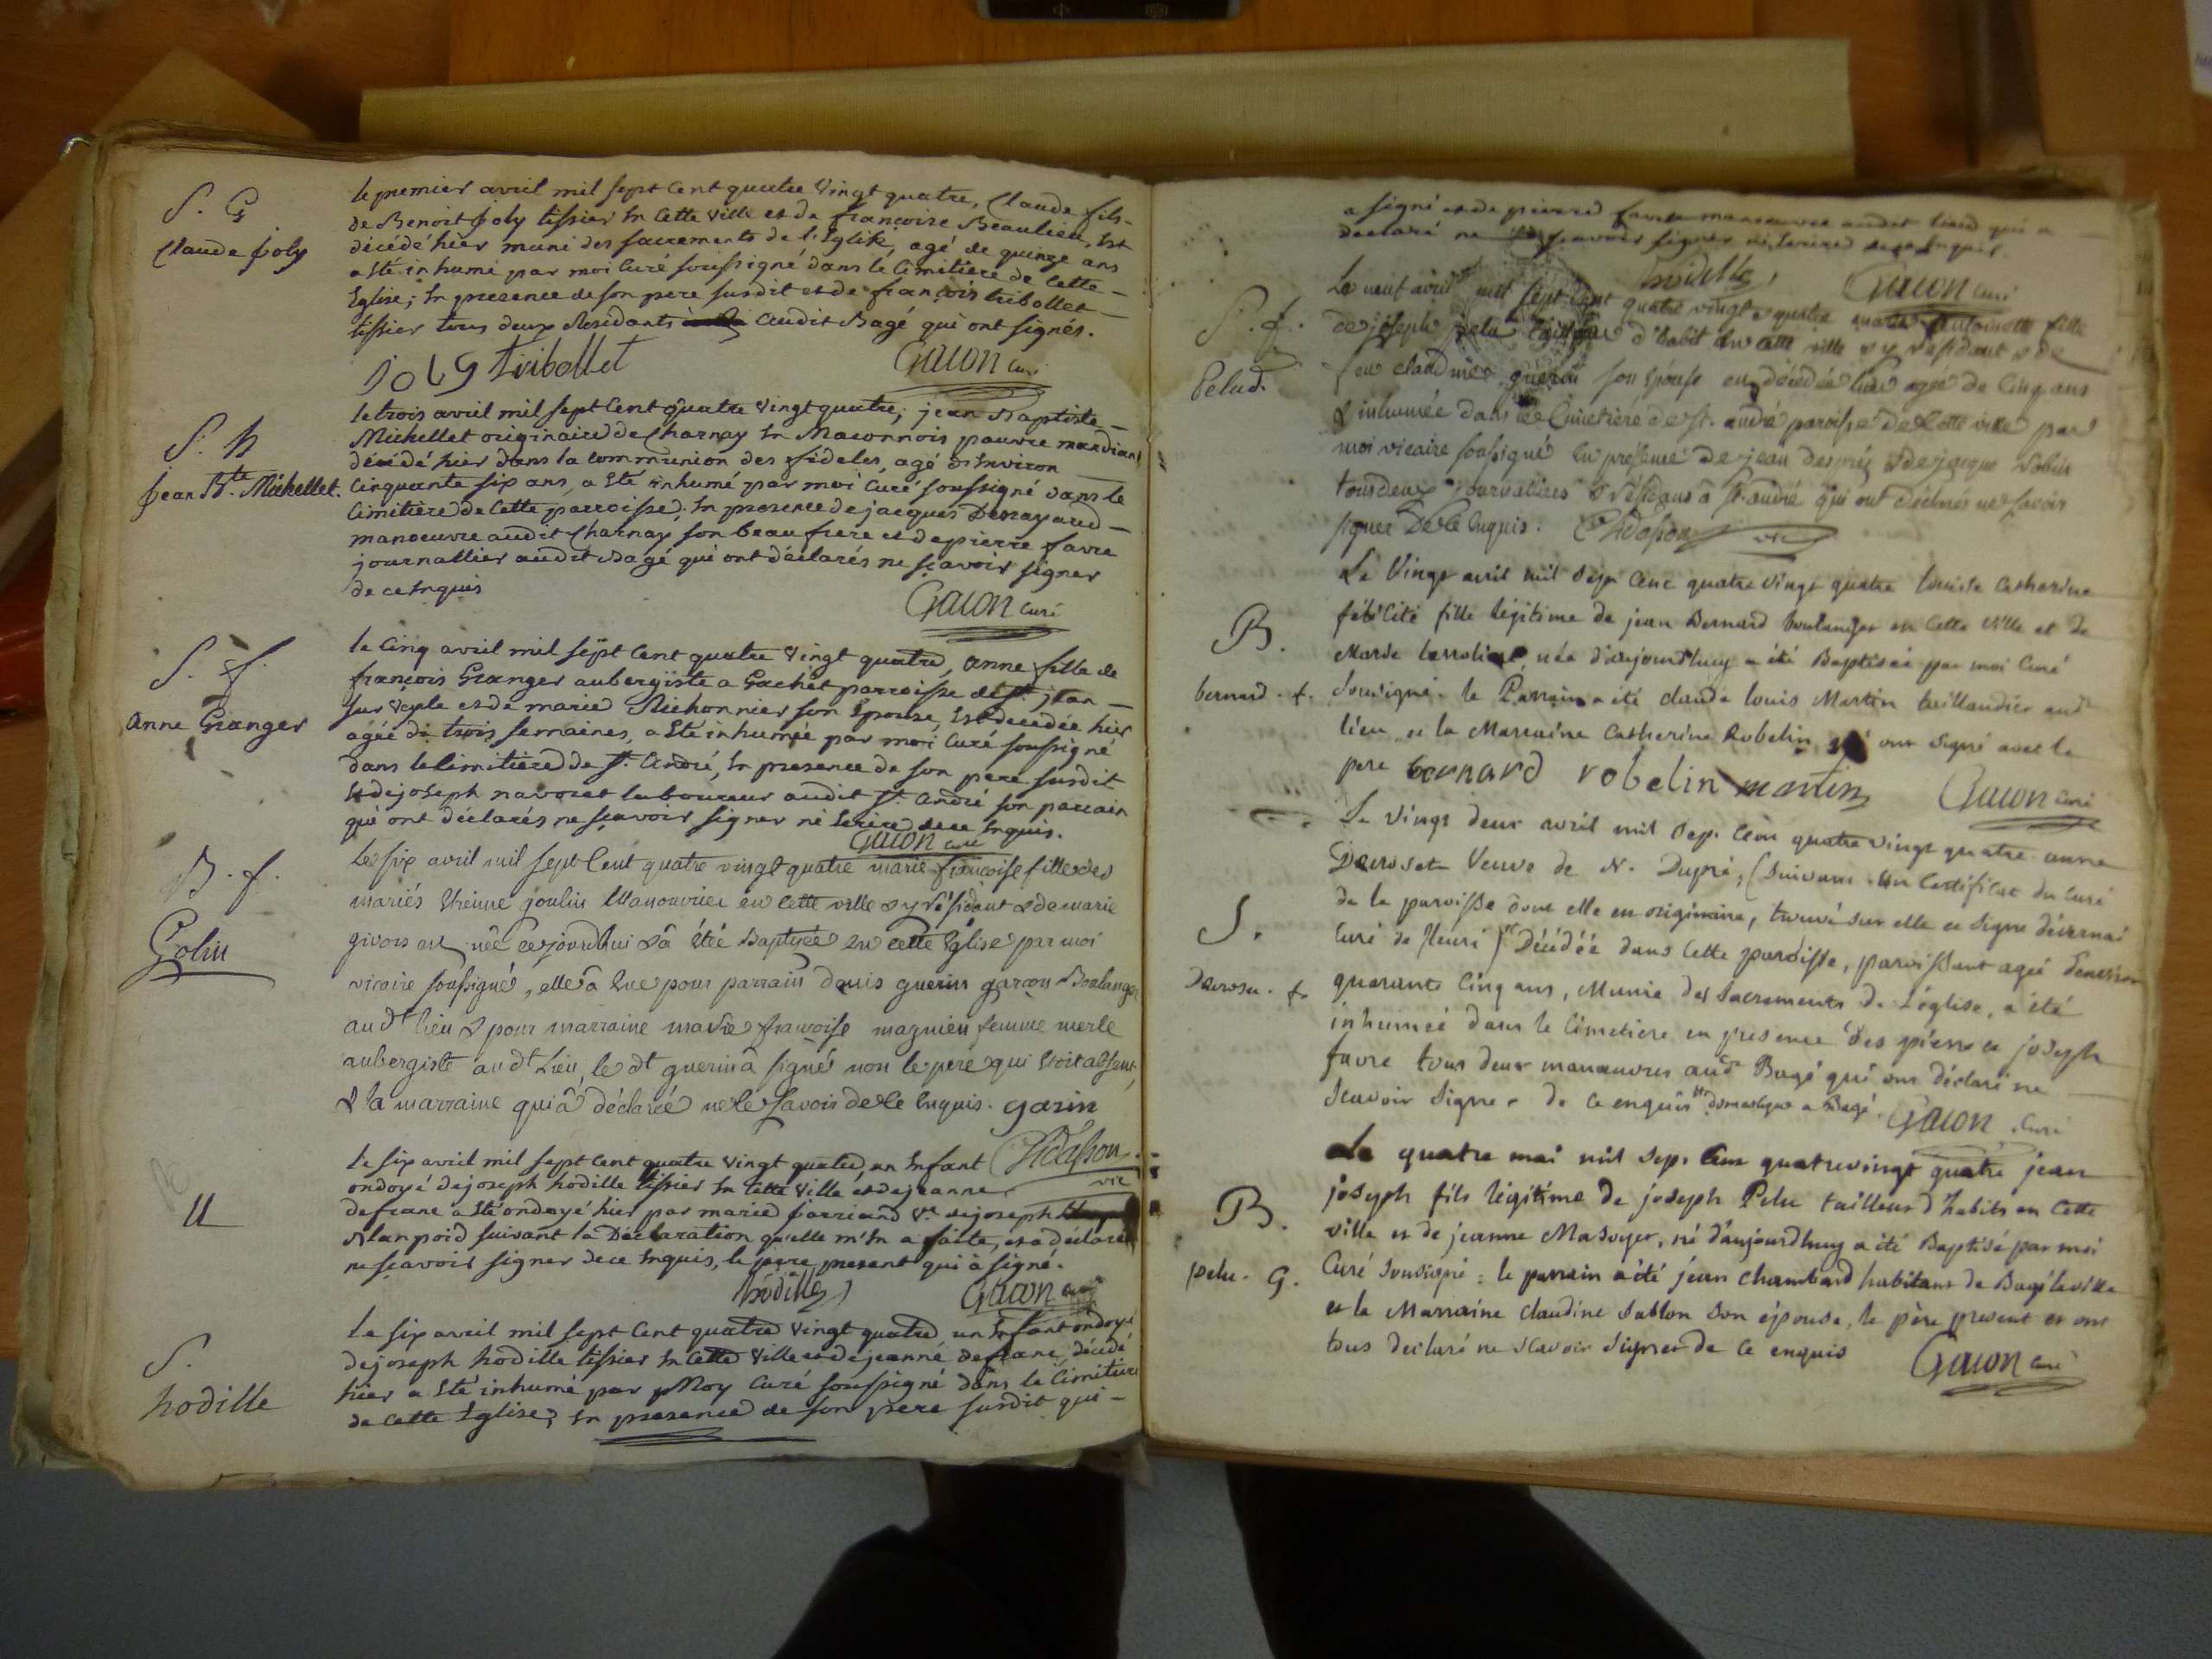 S. G
Claude Joly
le premier avril mil sept Cent quatre Vingt quatre, Claude fils
de Benoit Joly tissier En Cette Ville et de françoise Beaulieu, Est
décédé hier muni des sacrements de l'Eglise, agé de quinze ans
a Eté inhumé par moi Curé soussigné dans le Cimitiere de Cette
Eglise; En presence de son pere susdit et de françois tribollet
tissier tous deux Residants audit Bagé qui ont signés.
Joly tribollet Gacon Curé
S. h
Jean Bte. Michellet.
le trois avril mil sept Cent quatre Vingt quatre, jean Baptiste
Michellet originaire de Charnay En Maconnois pauvre mandiant
décédé hier dans la Communion des fideles, agé d'Environ
Cinquante six ans, a Eté inhumé par moi Curé soussigné dans le
Cimitiere de Cette parroisse; En presence de jacques
manoeuvre audit Charnay son beau frere et de pierre favre
journallier audit Bagé qui ont déclarés ne sçavoir signer
de ce Enquis
Gacon Curé
S. f.
Anne Granger
le Cinq avril mil sept Cent quatre Vingt quatre, anne fille de
françois Granger aubergiste a Gachet parroisse de St. jean
sur Veyle et de marie Michonnier son Epouse, Est décédée hier
agée de trois semaines, a Eté inhumée par moi Curé soussigné
dans le Cimitiere de St. André, En presence de son pere susdit
Et de joseph navoret laboureur audit St. André son parrain
qui ont déclarés ne sçavoir signer ni Ecrire de ce Enquis.
Gacon Curé
B. f.
Golin
Le six avril mil sept Cent quatre vingt quatre marie françoise fille des
mariés Etienne goulin Manouvrier en cette ville & y résidant & de marie
givors est née cejourd'hui & a été Baptizée En cette Eglise par moi
vicaire soussigné, elle a Eue pour parrain Denis guerin garçon Boulanger
audt lieu & pour marraine marie françoise magnien femme merle
aubergiste audt Lieu, le dt guerin a signé non le pere qui Etoit absent,
& la marraine qui a déclarée ne le savoir de ce Enquis. garin
vic
U
le six avril mil sept Cent quatre Vingt quatre, un Enfant
ondoyé de joseph hodille tissier En Cette Ville et de jeanne
defrane a Eté ondoyé hier par marie Ve de joseph
suivant la Déclaration qu'elle m'En a faite, et a déclaré
ne sçavoir signer de ce Enquis, le pere present qui a signé.
hodille Gacon Curé
S.
hodille
Le six avril mil sept Cent quatre Vingt quatre, un Enfant ondoyé
de joseph hodille tissier En Cette Ville et de jeanne defrane, décédé
hier a Eté inhumé par Moy Curé soussigné dans le Cimitiere
de Cette Eglise, En presence de son pere susdit qui
a signé et de pierre favre manoeuvre audit lieu qui a
declaré ne sçavoir signer ni Ecrire de ce Enquis.
hodille Gacon Curé
S. f.
Pelud.
Le neuf avril mil sept Cent quatre vingt quatre marie antoinette fille
de joseph pelu tailleur d'habit en cette ville & y résidant & de
feu claudine guerin son Epouse est décédée hier agée de Cinq ans
& inhumée dans le Cimetiere de St. andré paroisse de Cette ville par
moi vicaire soussigné En présence de jean & de jacque
tous deux journaliers & résidans à St. andré qui ont déclarés ne savoir
signer De ce Enquis. vic
B.
bernard. f.
Le Vingt avril mil sept cent quatre Vingt quatre Louise Catherine
félicité fille légitime de jean Bernard boulanger en Cette Ville et de
Marie née d'aujourd'huy a été Baptisée par moi Curé
Soussigné. le Parrain a été claude louis Martin taillandier aud
lieu, et la Marraine Catherine Robelin, ont signé avec le
pere bernard robelin martin Gacon Curé
S.
f
Le Vingt deux avril mil sept Cent quatre vingt quatre anne
Veuve de N. Dupré, (suivant un Certificat du Curé
de la paroisse dont elle est originaire, trouvé sur elle et signé
Curé de fleuri) Décédée dans Cette paroisse, paroissant agée d'environ
quarante Cinq ans, Munie des Sacrements de l'église, a été
inhumée dans le Cimetiere en presence des pierre et joseph
favre tous deux manoeuvres aud Bagé qui ont déclaré ne
Scavoir Signer de ce enquis domestique a Bagé. Gacon Curé
B.
pelu. G.
Le quatre mai mil sept Cent quatrevingt quatre jean
joseph fils légitime de joseph Pelu tailleur d'habits en Cette
ville et de jeanne Masoyer, né d'aujourd'huy a été Baptisé par moi
Curé Soussigné: le parrain a été jean Chambard habitant de Bagé la ville
et la Marraine claudine Sablon Son épouse, le père présent et ont
tous declaré ne Scavoir Signer de Ce enquis
Gacon Curé